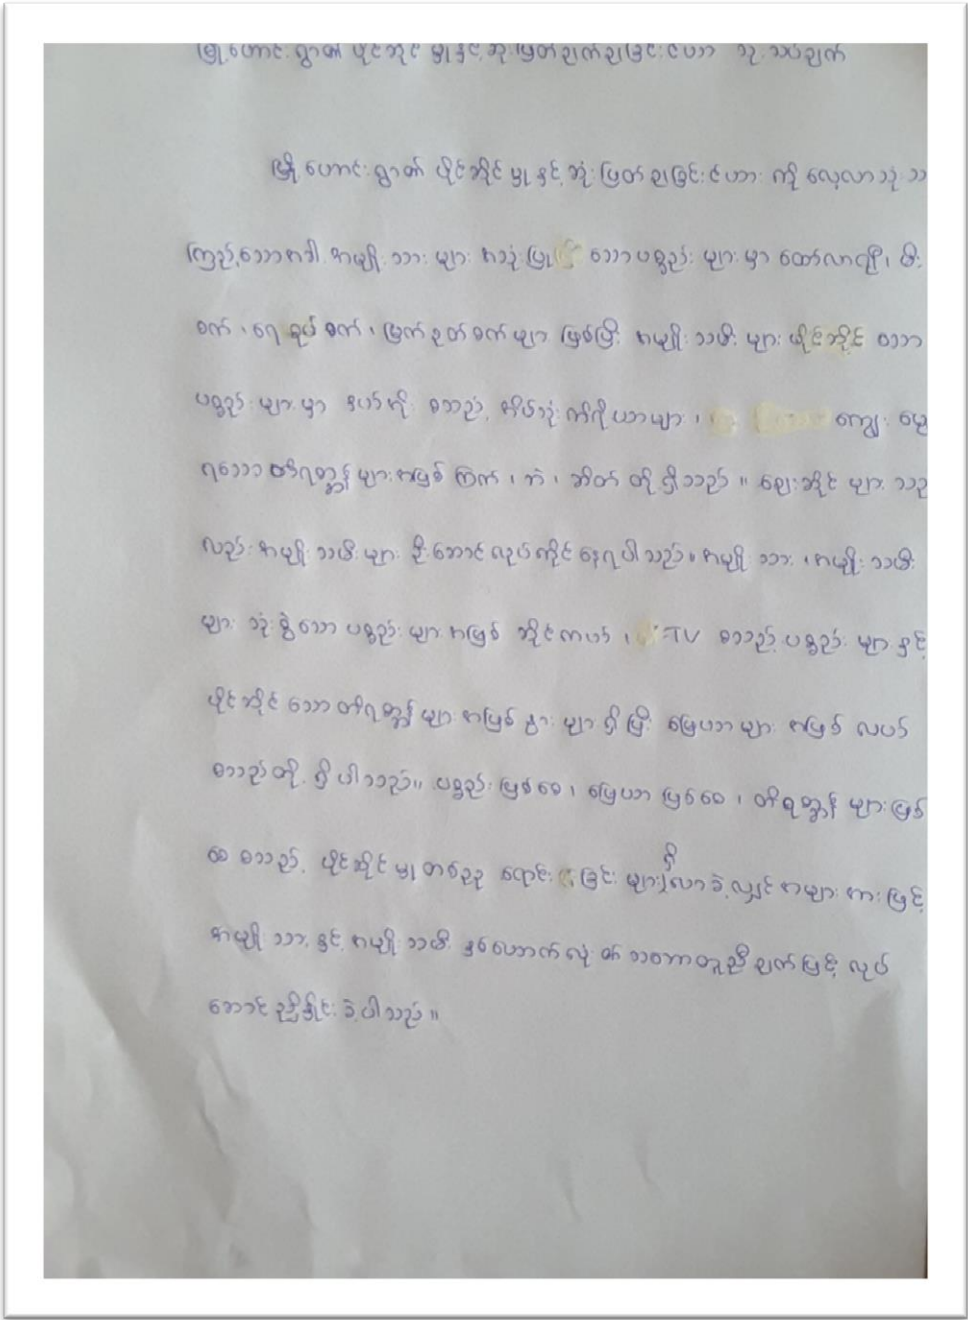 မြို့ဟောင်းရွာ၏ ပိုင်ဆိုင်မှုနှင့် ဆုံးဖြတ်ချက်ချခြင်းဇယား သုံးသပ်ချက်
မြို့ဟောင်းရွာ၏ ပိုင်ဆိုင်မှုနှင့် ဆုံးဖြတ်ချခြင်းဇယားကို လေ့လာသုံးသ
ကြည့်သောအခါ အမျိုးသားများ အသုံးပြု သောပစ္စည်းများမှာ ထော်လာဂျီ၊ မီး
စက်၊ ရေစုပ်စက်၊ မြက်ခုတ်စက်များ ဖြစ်ပြီး အမျိုးသမီးများ ပိုင်ဆိုင်သော
ပစ္စည်းများမှာ စသည့် အိမ်သုံး ကိရိယာများ၊ ကျွေးမွေ
ရသော တိရစ္ဆာန်များအဖြစ် ကြက်၊ ဘဲ၊ ဆိတ် တို့ရှိသည်။ ဈေးဆိုင်များသည်
လည်း အမျိုးသမီးများ ဦးဆောင်လုပ်ကိုင်နေရပါသည်။ အမျိုးသား၊ အမျိုးသမီး
များ သုံးစွဲသော ပစ္စည်းများအဖြစ် ဆိုင်ကယ်၊ TV စသည့်ပစ္စည်းများနှင့်
ပိုင်ဆိုင်သော တိရစ္ဆာန်များအဖြစ် နွားများရှိပြီး မြေယာများအဖြစ် လယ်
စသည်တို့ ရှိပါသည်။ ပစ္စည်းဖြစ်စေ၊ မြေယာဖြစ်စေ၊ တိရစ္ဆာန်များဖြစ်
စေ စသည့် ပိုင်ဆိုင်မှုတစ်ခုခု ရောင်းခြင်းများရှိလာခဲ့လျှင် အများအားဖြင့်
အမျိုးသားနှင့် အမျိုးသမီး နှစ်ယောက်လုံး၏ သဘောတူညီချက်ဖြင့် လုပ်
ဆောင်ညှိနှိုင်းခဲ့ပါသည်။